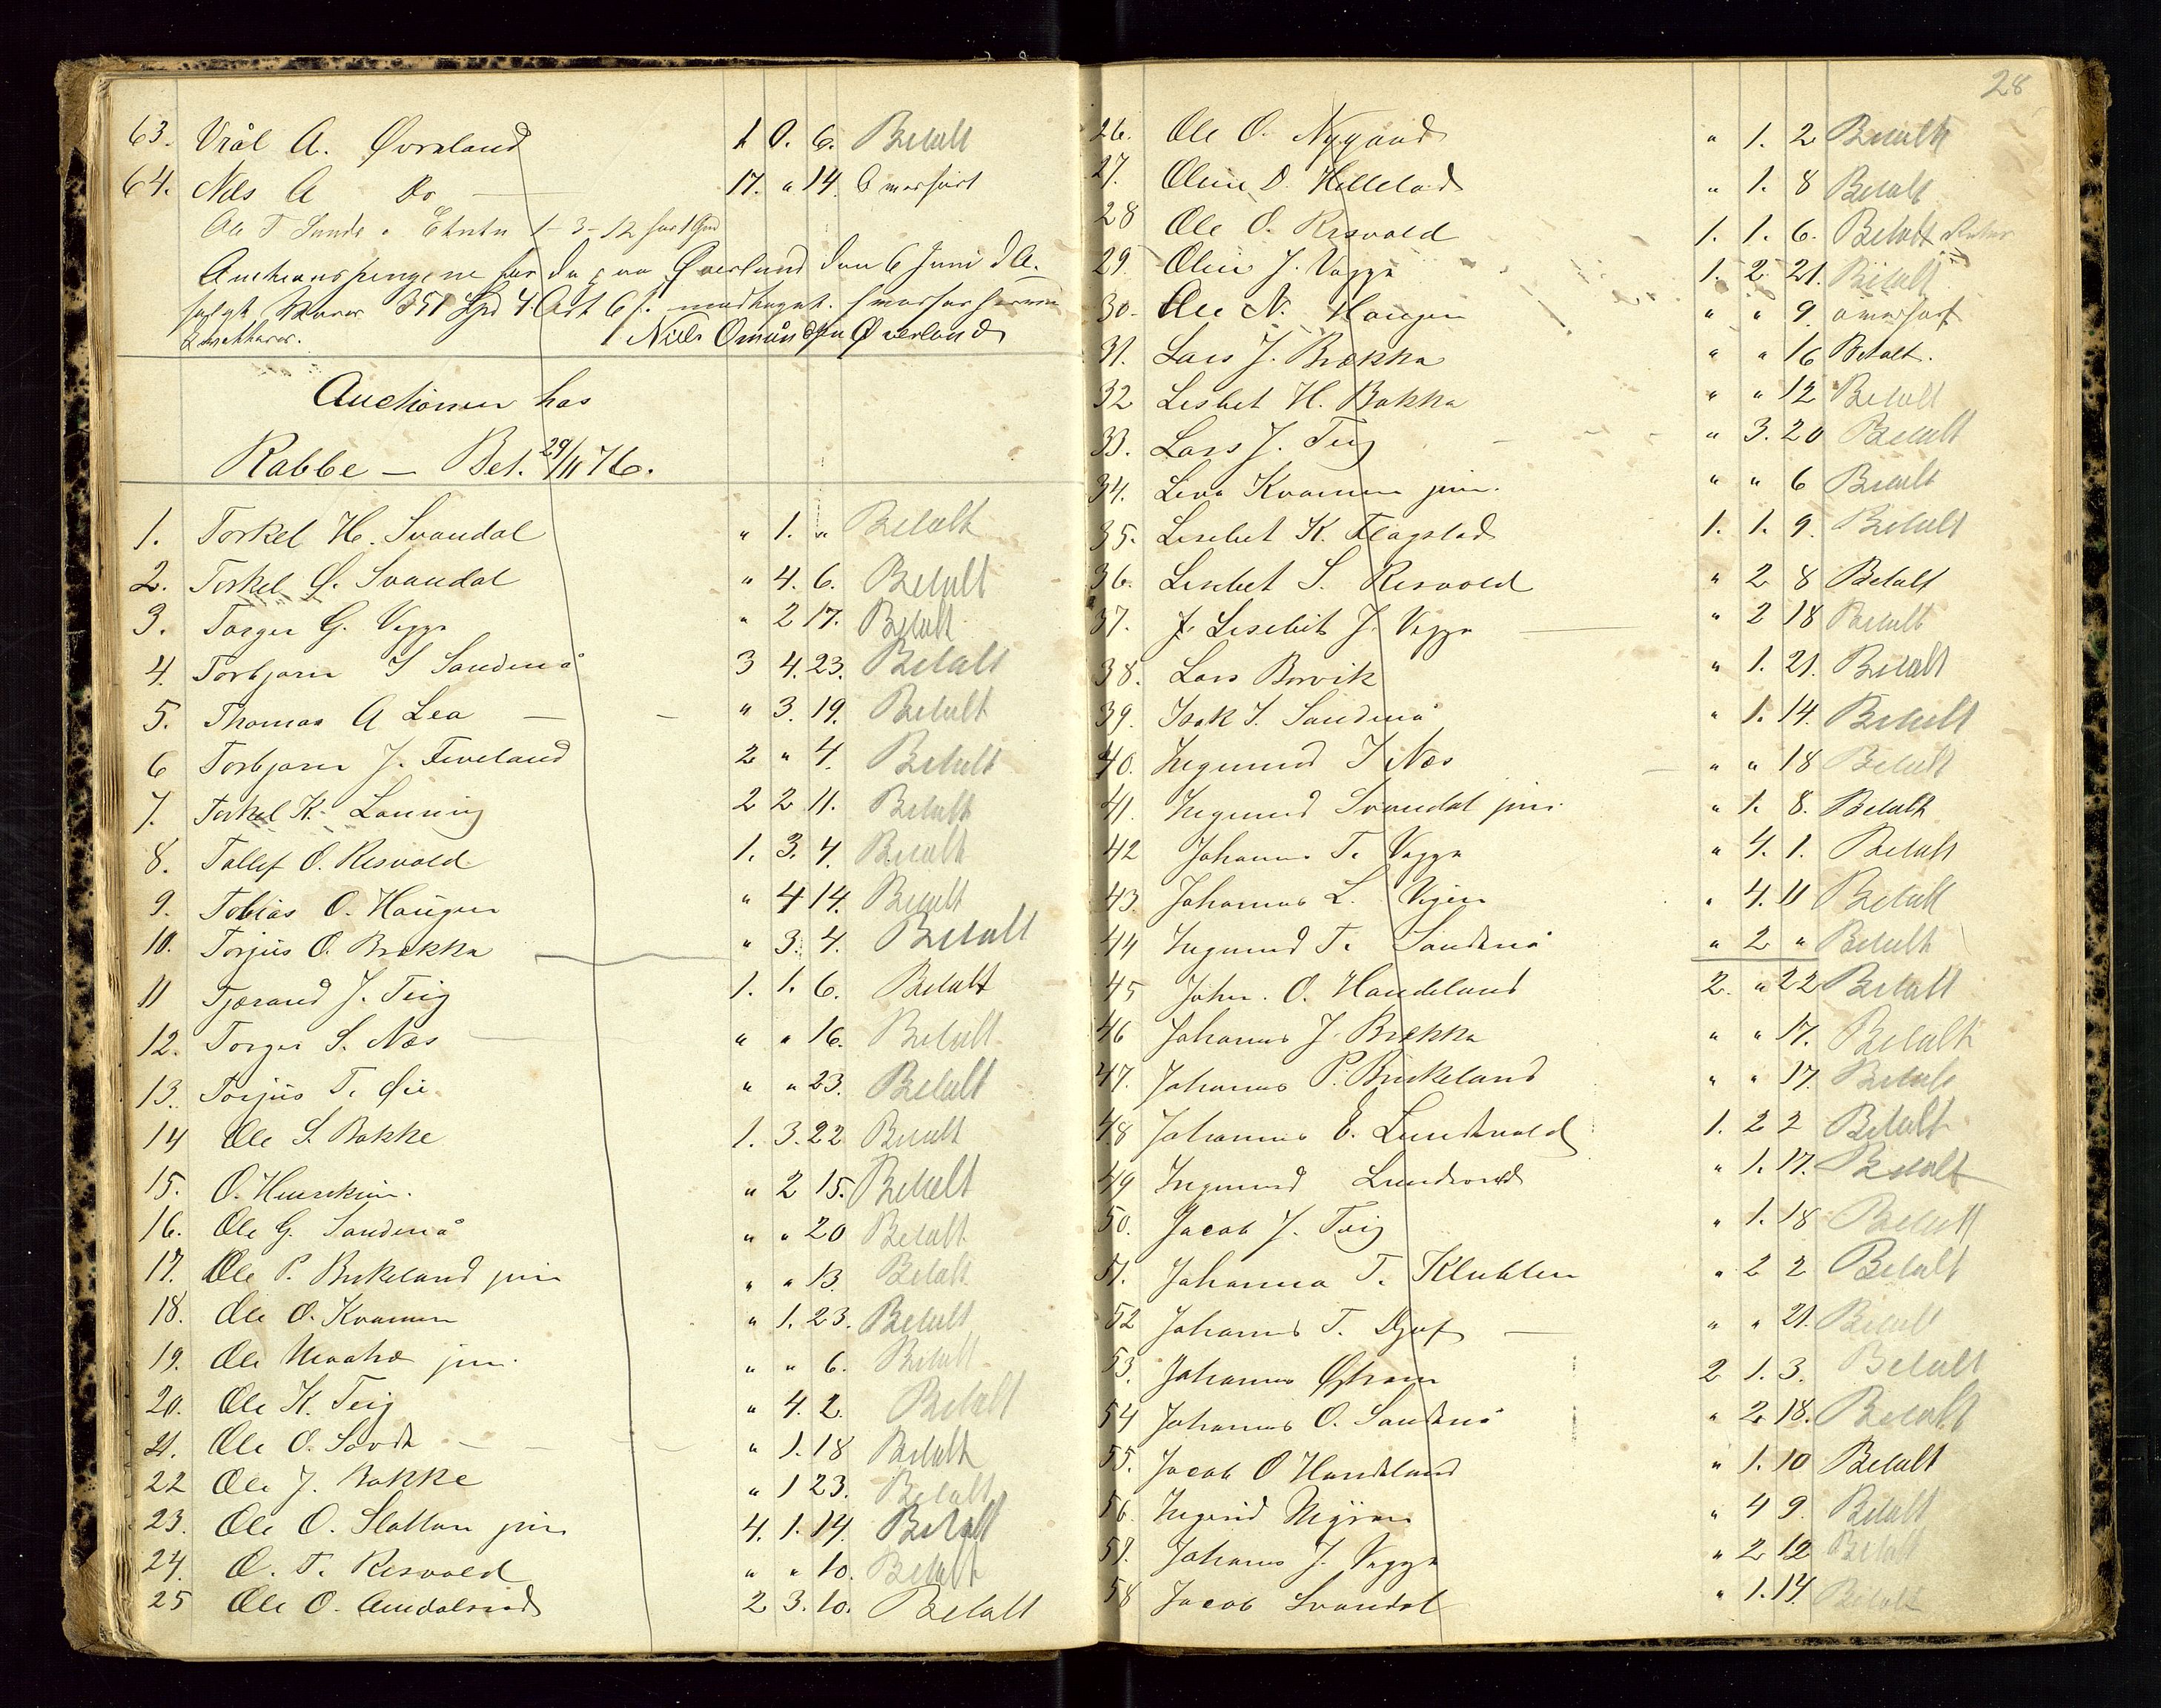 63. Viål A. Øverland 1 0. 6. Betalt
64. Nils A Do 17. " 14.
Ole T Sunde 1-3-12
Auctionspengene for da paa Øverland den 6 Juni d A.
solgt Varer 51 Spd 4 Ort 6 s. modtaget
Niels Omundsen Øverland
Auctionen hos
Rabbe — Bet. 29/11 76.
1. Torkel H. Svandal " 1. " Betalt
2. Torkel Ø. Svandal " 4. 6. Betalt
3. Torger G. Vigge " 2 17. Betalt
4. Torbjørn I Sandenå 3 4. 23. Betalt
5. Thomas A Lea — — " 3. 19. Betalt
6 Torbjørn J. Fiveland 2 " 4. Betalt
7. Torkel K. Lonning 2 2 11. Betalt
8. Tollef O. Risvold 1. 3. 4. Betalt
9. Tobias O. Haugen " 4 14. Betalt
10. Torjus O. Brekka " 3. 4. Betalt
11 Tjerand J. Teig 1. 1. 6. Betalt
12. Torger S. Næs " " 16. Betalt
13. Torjus T. Øie " " 23. Betalt
14 Ole S. Bakke 1. 3. 22 Betalt
15. O. Henrikson. " 2 15. Betalt
16. Ole G. Sandenå " " 20 Betalt
17. Ole P. Birkeland jun " " 13. Betalt
18. Ole O. Kvamen " 1. 23. Betalt
19. Ole jun. " " 6. Betalt
20. Ole K. Teig " 4. 2. Betalt
21. Ole O. — " 1. 18 Betalt
22 Ole J. Bakke " 1 23. Betalt
23. Ole O. Slotten jun 4. 1. 14. Betalt
24. O. T. Risvold " " 10. Betalt
25 Ole O. Amdalsrud 2 3. 10. Betalt
28
26. Ole O. Nygaard " 1. 2 Betalt
27. Oline D. Hellelad " 1. 8 Betalt
28 Ole O. Risvold 1. 1. 6. Betalt
29. Oline J. Vigge 1. 2 21. Betalt
30. Ole N. Haugen " " 9
31. Lars J. Brekka " " 16 Betalt.
32 Lisbet H. Bakka " " 12 Betalt
33. Lars J. Teig " 3. 20 Betalt
34. Kvamen jun. " " 6 Betalt
35. Lisebet K. Flagstad 1. 1. 9. Betalt
36. Lisebet S. Risvold " 2 8 Betalt
37. Lisebet J. Vigge — " 2 18 Betalt
38. Lars Borvik " 1. 21. Betalt
39. Isak I. Sandenå " 1. 14. Betalt
40. Ingemund I Næs " " 18 Betalt
41. Ingmund Svandal jun. " 1. 8. Betalt
42 Johannes T. Vigge " 4. 1. Betalt
43. Johannes L. " 4. 11 Betalt
44 Ingmund T. Sandenå " 2 " Betalt
45 John. O. Handeland 2. " 22 Betalt
46 Johannes J. Brekka " " 17. Betalt
47. Johannes P. Birkeland " " 17. Betalt
48 Johannes E. Lundevold 1. 2 2 Betalt
49 Ingmund Lundevold " 1. 17. Betalt
50. Jacob J. Teig " 1. 18 Betalt
51. Johanna T. Klubben " 2 2 Betalt
52 Johannes T. — " " 21. Betalt
53. Johannes 2 1. 3. Betalt
54 Johannes O. Sandenå " 2. 18. Betalt
55. Jacob O Handeland " 1. 10 Betalt
56. Ingrid " 4 9. Betalt
57. Johannes J. Vigge " 2 12 Betalt
58 Jacob Svandal " 1. 14. Betalt